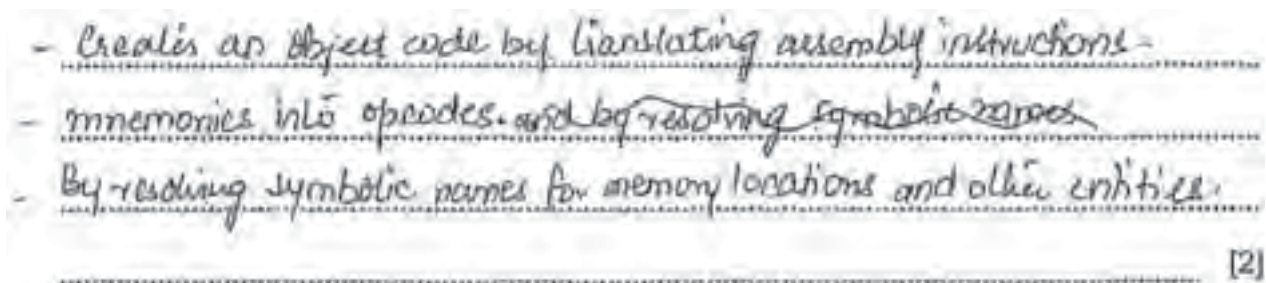 - Creates an object code by translating assembly instructions -
- mnemonics into opcodes. and by resolving symbolic names
- By resolving symbolic names for memory locations and other entities.
[2]